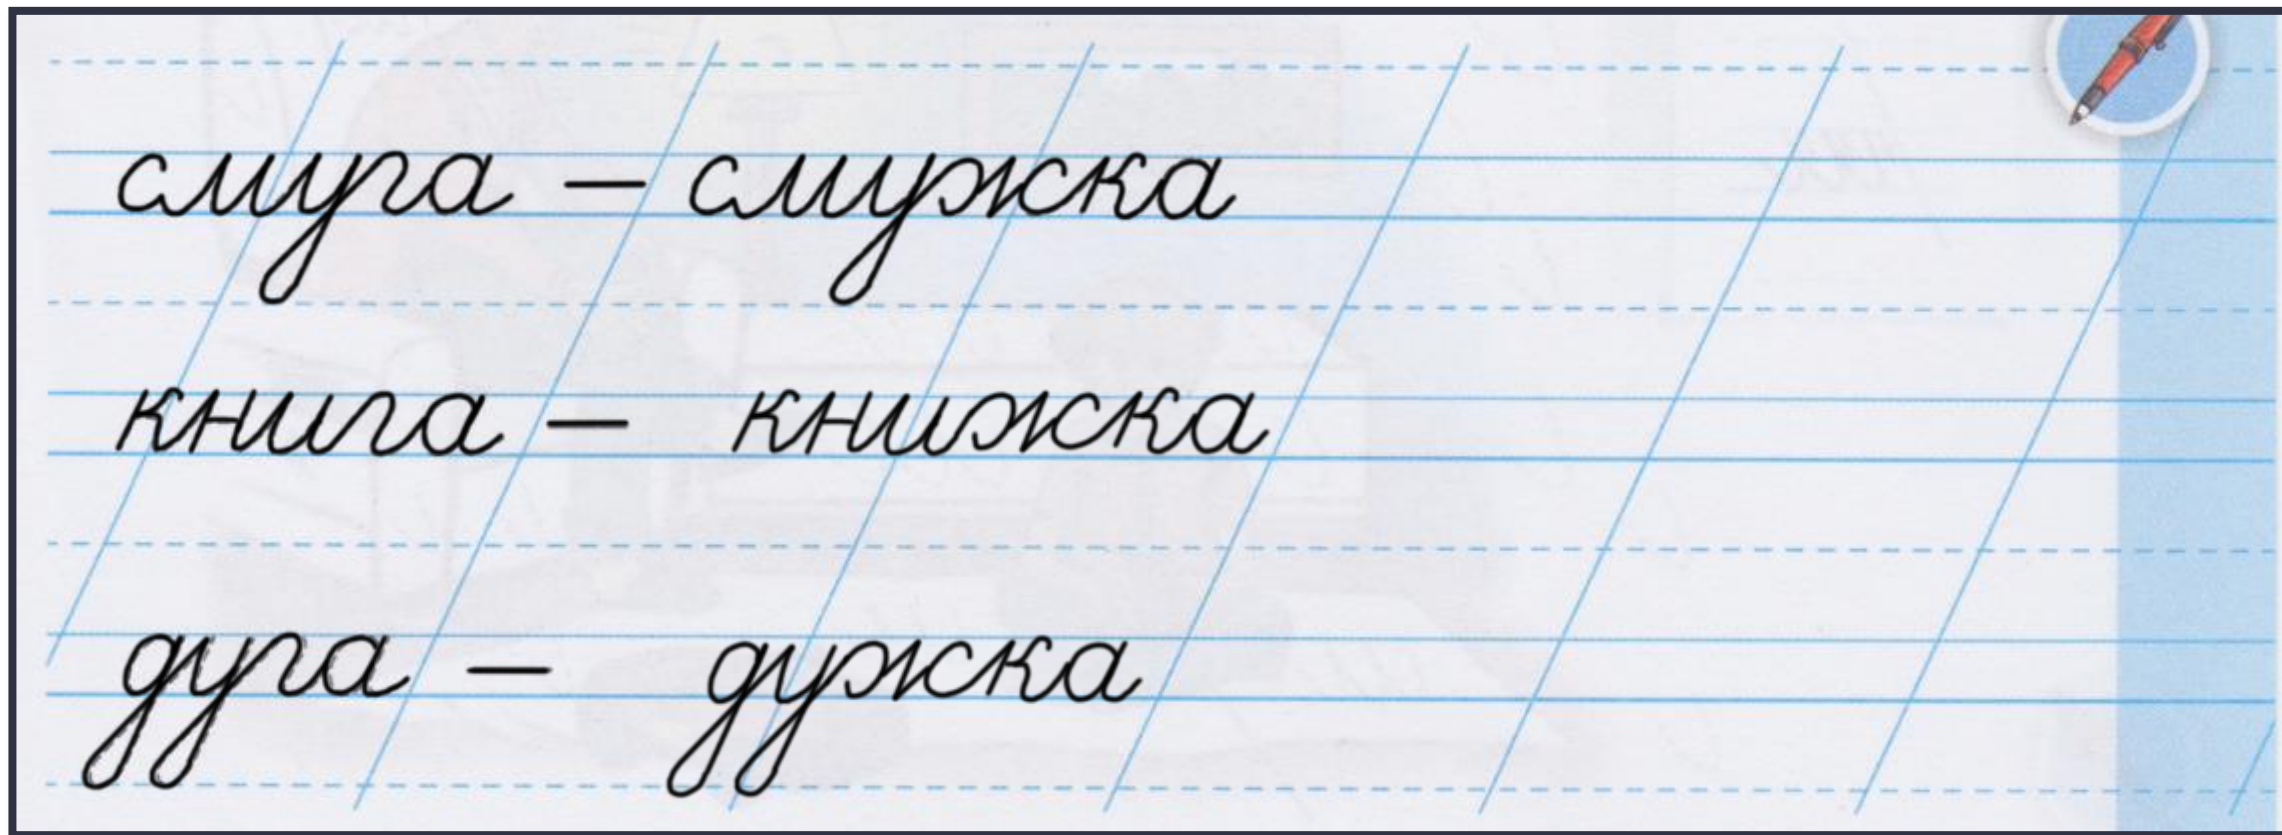 смуга – смужка
книга – книжка
дуга – дужка